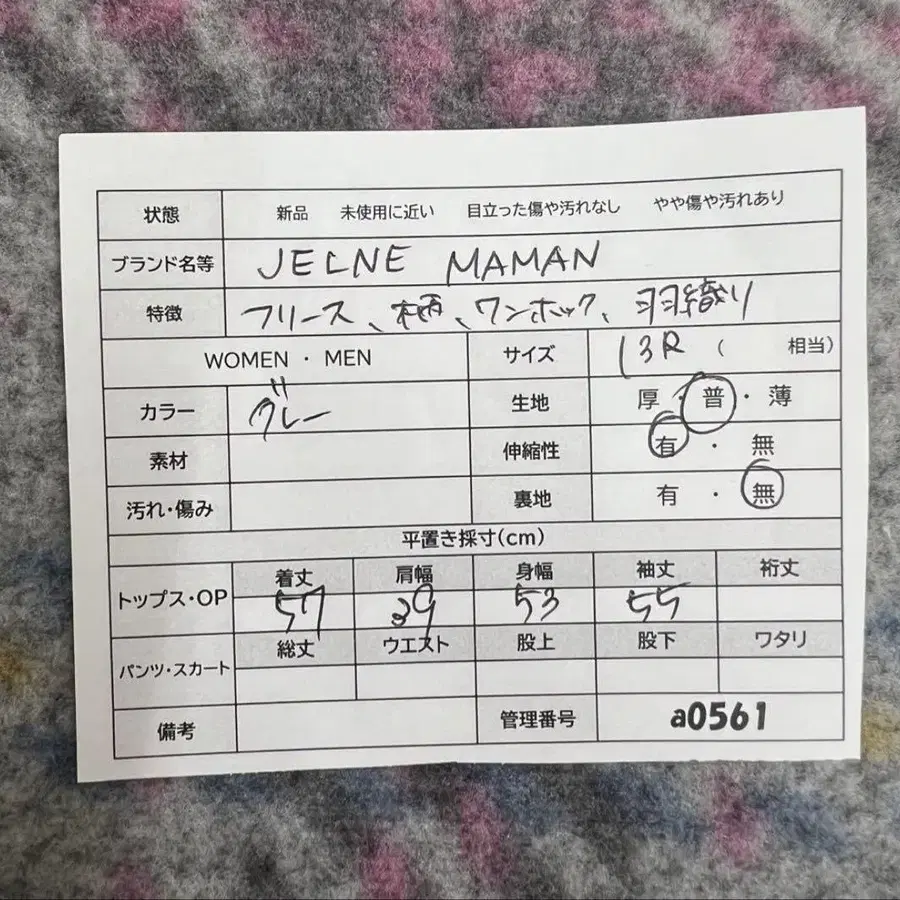 状態 新品 未使用に近い 目立った傷や汚れなし やや傷や汚れあり
ブランド名等 JELNE MAMAN
特徴 フリース、柄、ワンホック、羽織り
WOMEN ・ MEN サイズ 13R ( 相当)
カラー グレー 生地 厚・普・薄
素材 伸縮性 有・無
汚れ・傷み 裏地 有・無
平置き採寸(cm)
トップス・OP 着丈 肩幅 身幅 袖丈 裄丈
57 39 53 55
パンツ・スカート 総丈 ウエスト 股上 股下 ワタリ
備考 管理番号 a0561